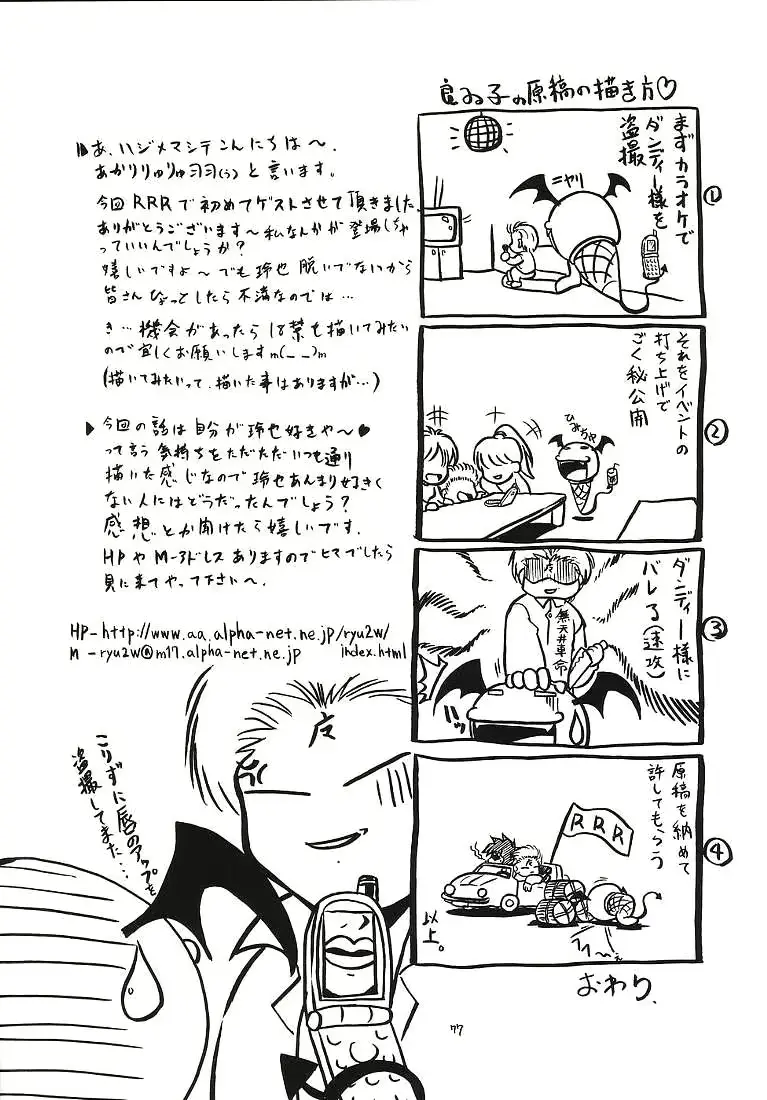 良ゐ子の原稿の描き方♡
①
まずカラオケで
ダンディー様を
盗撮
ニヤリ
②
それをイベントの
打ち上げで
ごく秘公開
③
ダンディー様に
バレる(速攻)
無天井革命
④
原稿を納めて
許してもらう
RRR
以上。
おわり.
あ、ハジメマシテこんにちは〜.
と言います。
今回RRRで初めてゲストさせて頂きました.
ありがとうございます〜私なんかが登場しちゃ
っていいんでしょうか?
嬉しいですよ〜でも玲也脱いでないから
皆さんひょっとしたら不満なのでは…
き…機会があったら18禁も描いてみたい
ので宜しくお願いしますm(_ _)m
(描いてみたいって、描いた事はありますが…)
今回の話は自分が玲也好きや〜♥
って言う気持ちをただただいつも通り
描いた感じなので玲也あんまり好きく
ない人にはどうだったんでしょう?
感想とか聞けたら嬉しいです.
HPやM-アドレスありますのでヒマでしたら
見に来てやって下さい〜.
HP-http://www.aa.alpha-net.ne.jp/ryu2w/
index.html
M -ryu2w@m17.alpha-net.ne.jp
こりずに唇のアップを
盗撮してまた…
77